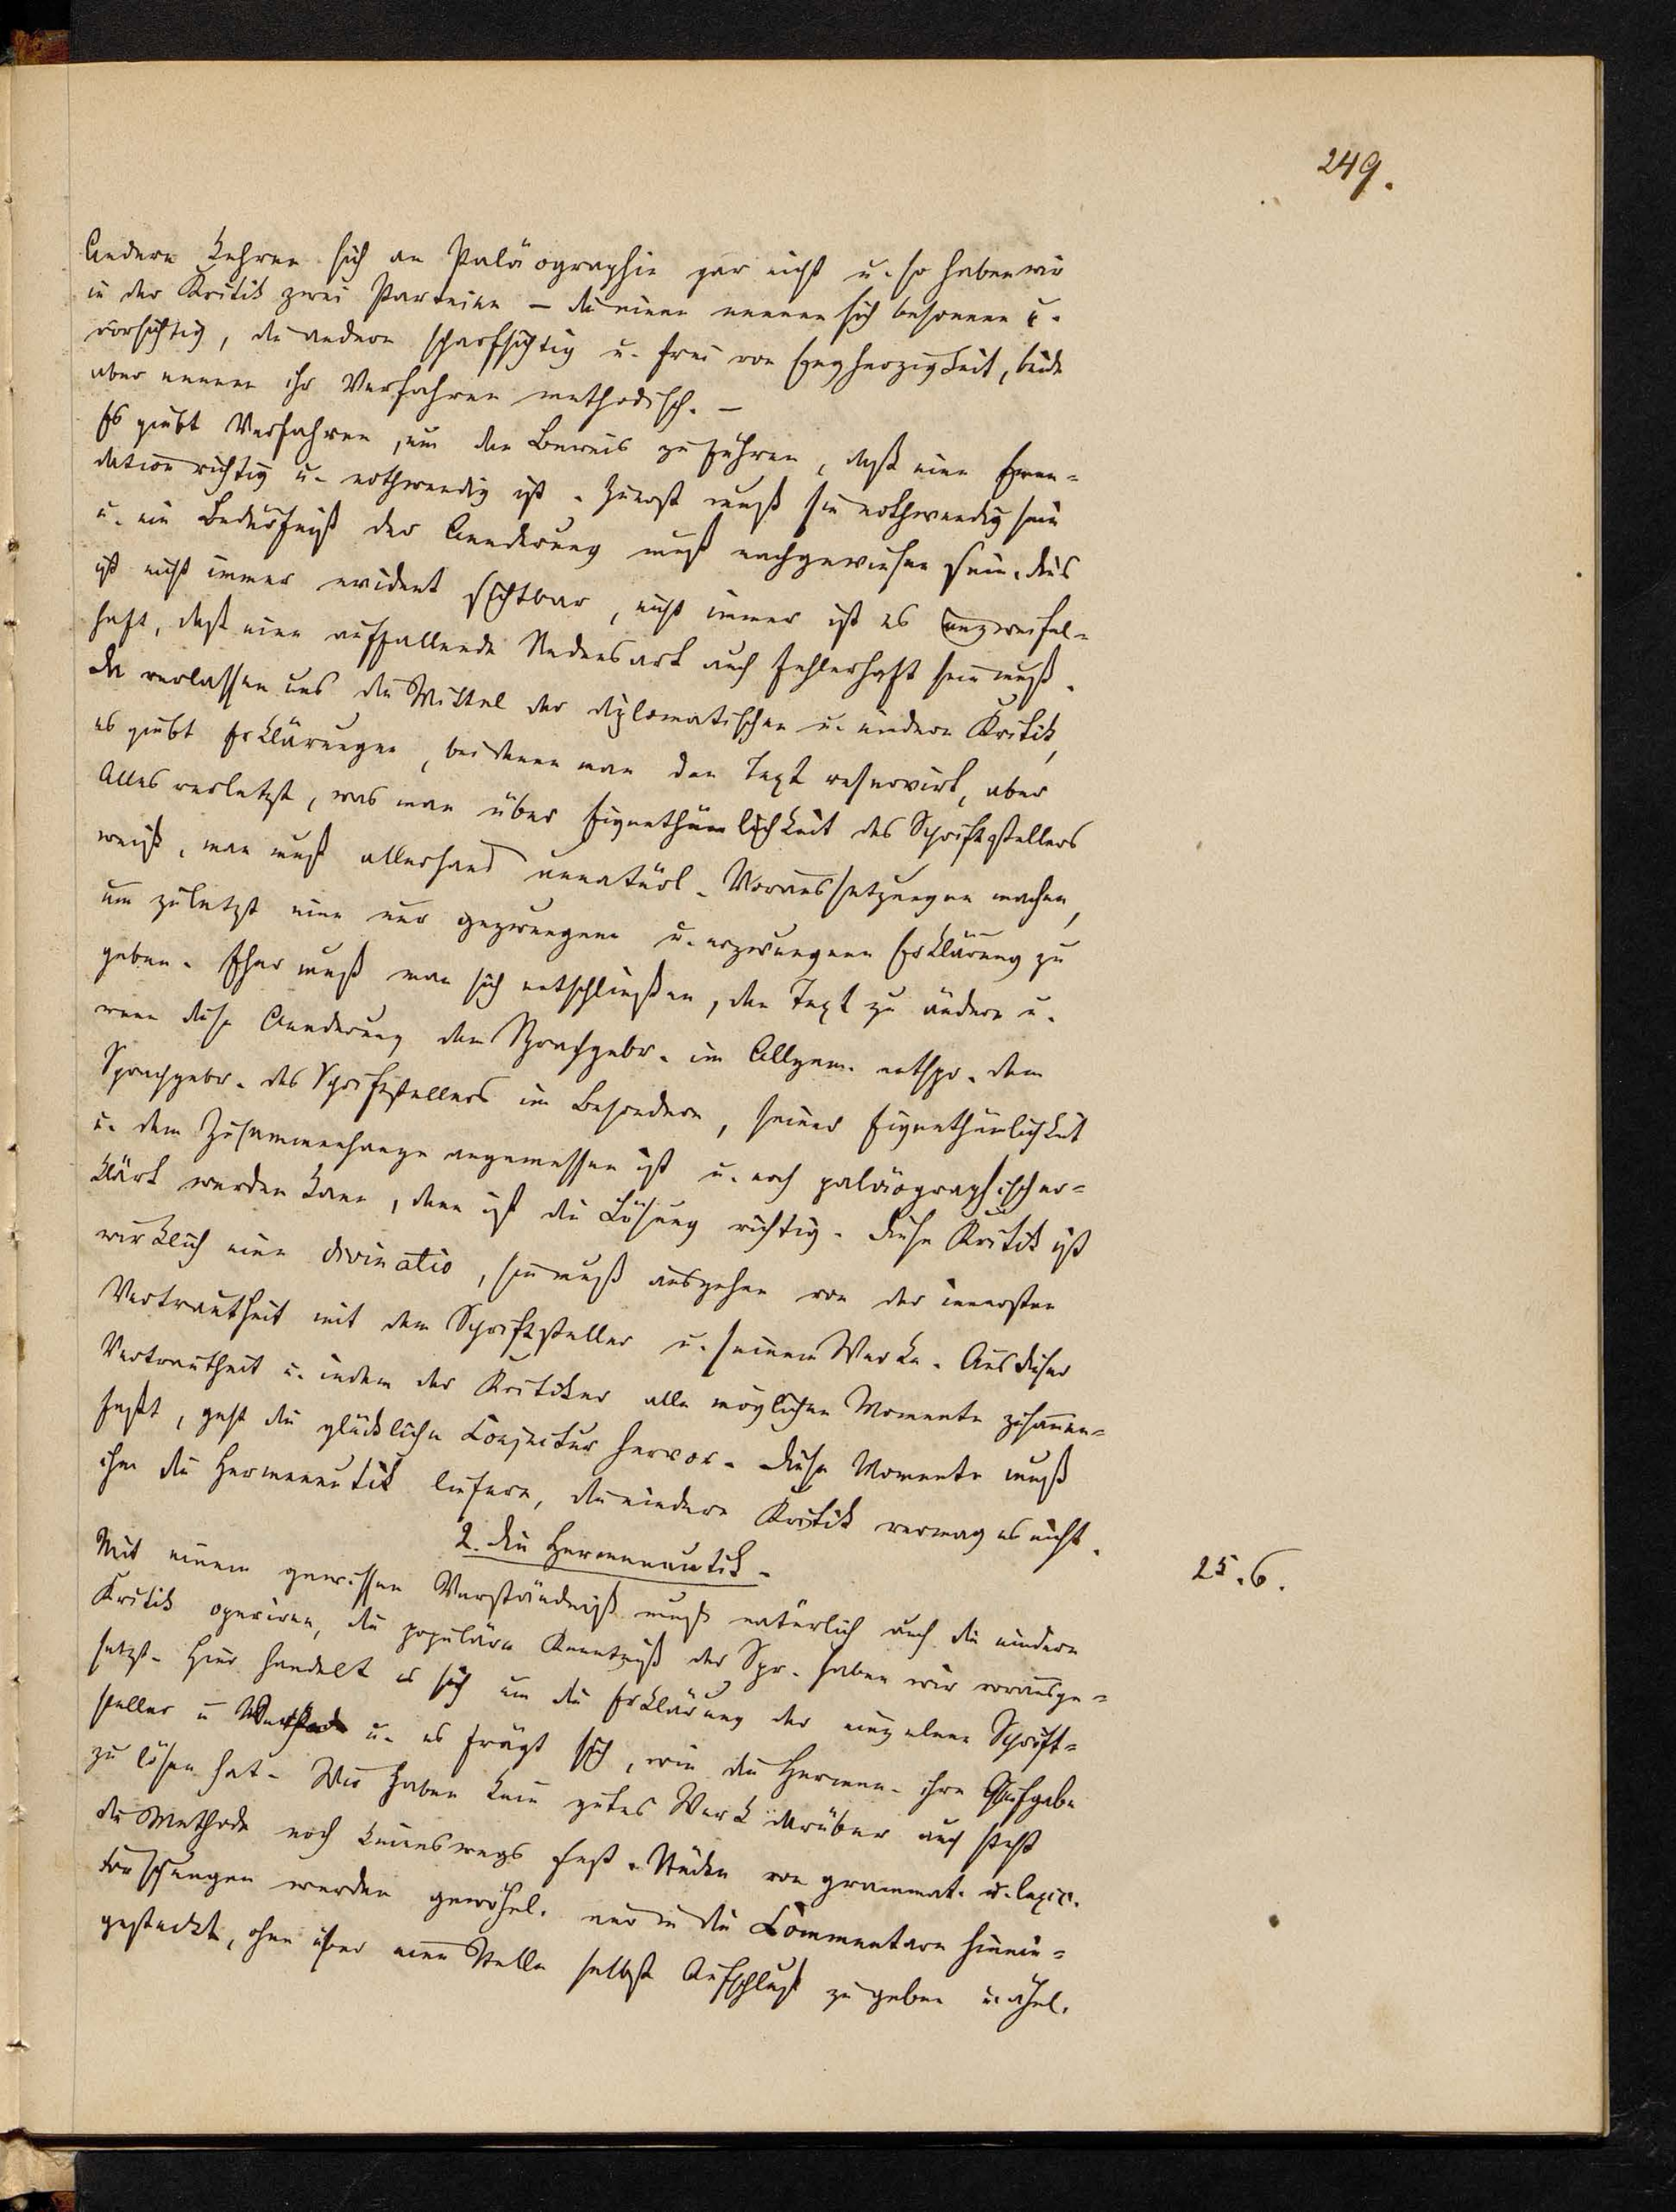 249.
Andere kehren sich an Paläographie gar nicht u. so haben wir
in der Kritik zwei Parteien – die einen nennen sich besonnen u.
vorsichtig, die andern scharfsichtig u. frei von Engherzigkeit, beide
aber nennen ihr Verfahren methodisch. –
Es giebt Verfahren, um den Beweis zu führen, daß eine Emen-
dation richtig u. nothwendig ist. Zuerst muß sie nothwendig sein
u. ein Bedürfniß der Aenderung muß nachgewiesen sein. Dies
ist nicht immer evident sichtbar, nicht immer ist es unzweifel-
haft, daß eine auffallende Redensart auch fehlerhaft sein muß.
Da verlassen uns die Mittel der diplomatischen u. niedern Kritik,
es giebt Erklärungen, bei denen man den Text reservirt, aber
Alles verletzt, was man über Eigenthümlichkeit des Schriftstellers
weiß, man muß allerhand unnatürl. Voraussetzungen machen,
um zuletzt eine nur gezwungene u. erzwungene Erklärung zu
geben. Eher muß man sich entschließen, den Text zu ändern u.
wenn diese Aenderung dem Sprachgebr. im Allgem. entspr. dem
Sprachgebr. des Schriftstellers im Besondern, seiner Eigenthümlichkeit
u. dem Zusammenhange angemessen ist u. noch paläographisch er-
klärt werden kann, dann ist die Lösung richtig. Diese Kritik ist
wirklich eine divinatio, sie muß ausgehen von der innersten
Vertrautheit mit dem Schriftsteller u. seinem Werke. Aus dieser
Vertrautheit u. indem der Kritiker alle möglichen Momente zusammen-
faßt, geht die glückliche Conjectur hervor. Diese Momente muß
ihm die Hermeneutik liefern, die niedere Kritik vermag es nicht.
2. Die Hermeneutik.
25.6.
Mit einem gewissen Verständniß muß natürlich auch die niedere
Kritik operiren, die populäre Kenntniß der Spr. haben wir vorausge-
setzt. Hier handelt es sich um die Erklärung der einzelnen Schrift-
steller u. Werke u. es frägt sich, wie die Hermen. ihre Aufgabe
zu lösen hat. Wir haben kein gutes Werk darüber auch steht
die Methode noch keineswegs fest. Stücke von grammat. u. lexic.
Forschungen werden gewöhnl. nur in die Commentare hinein-
gesteckt, ohne über eine Stelle selbst Aufschluß zu geben u. ähnl.